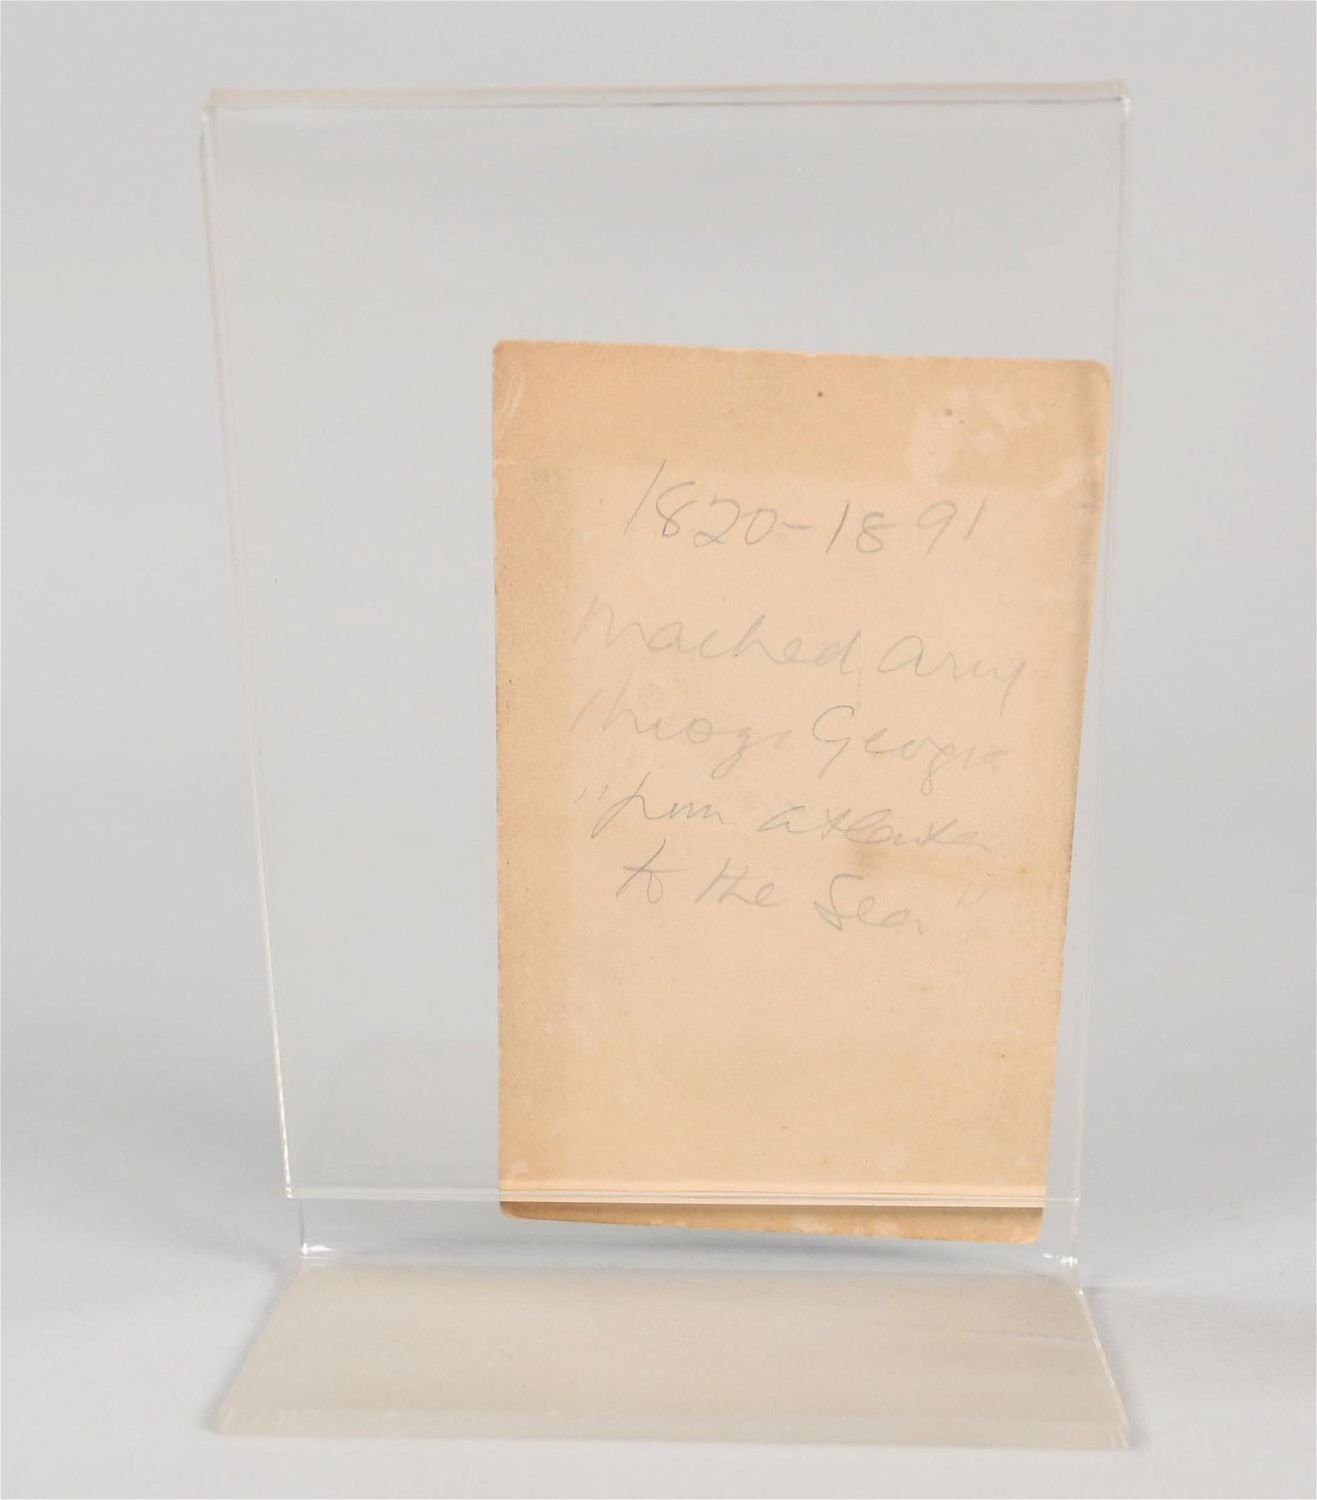 1820-1891
Mached Army
throgh Georgia
"from Atlanta
to the Sea"